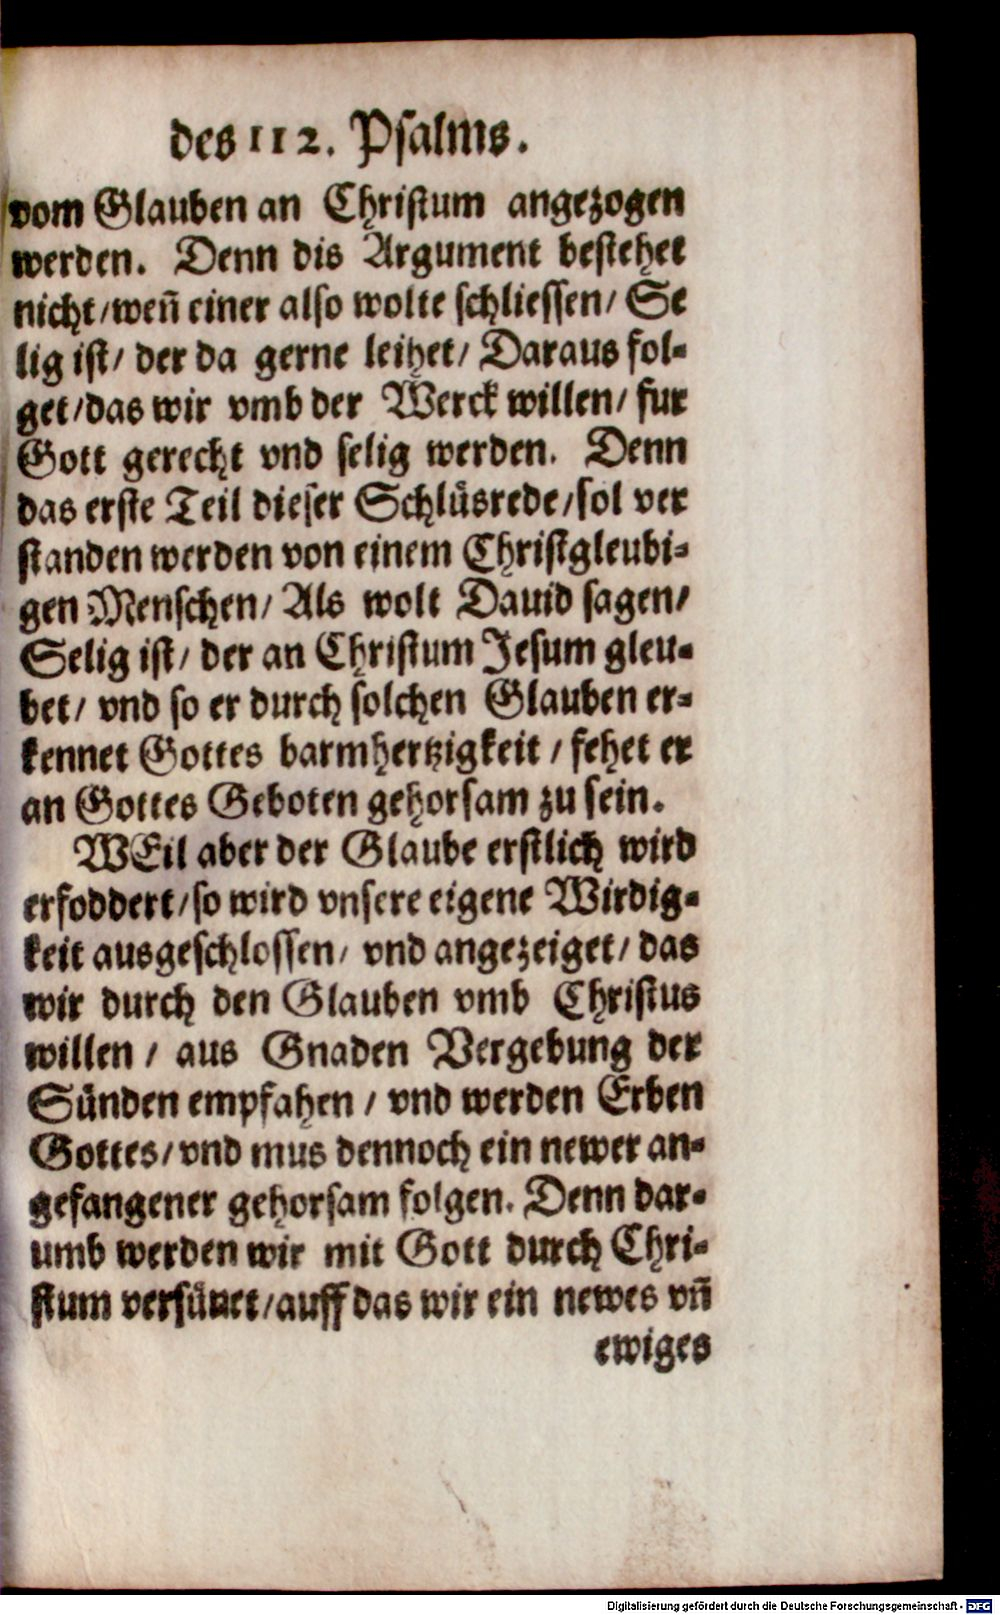 des 112. Psalms.
vom Glauben an Christum angezogen
werden. Denn dis Argument bestehet
nicht/ weñ einer also wolte schliessen/ Se
lig ist/ der da gerne leihet/ Daraus fol-
get/ das wir vmb der Werck willen/ fur
Gott gerecht vnd selig werden. Denn
das erste Teil dieser Schlüsrede/ sol ver
standen werden von einem Christgleubi-
gen Menschen/ Als wolt Dauid sagen/
Selig ist/ der an Christum Jesum gleu-
bet/ vnd so er durch solchen Glauben er-
kennet Gottes barmhertzigkeit/ fehet er
an Gottes Geboten gehorsam zu sein.
WEil aber der Glaube erstlich wird
erfoddert/ so wird vnsere eigene Wirdig-
keit ausgeschlossen/ vnd angezeiget/ das
wir durch den Glauben vmb Christus
willen/ aus Gnaden Vergebung der
Sünden empfahen/ vnd werden Erben
Gottes/ vnd mus dennoch ein newer an-
gefangener gehorsam folgen. Denn dar-
umb werden wir mit Gott durch Chri-
stum versünet/ auff das wir ein newes vñ
ewiges
Digitalisierung gefördert durch die Deutsche Forschungsgemeinschaft - DFG